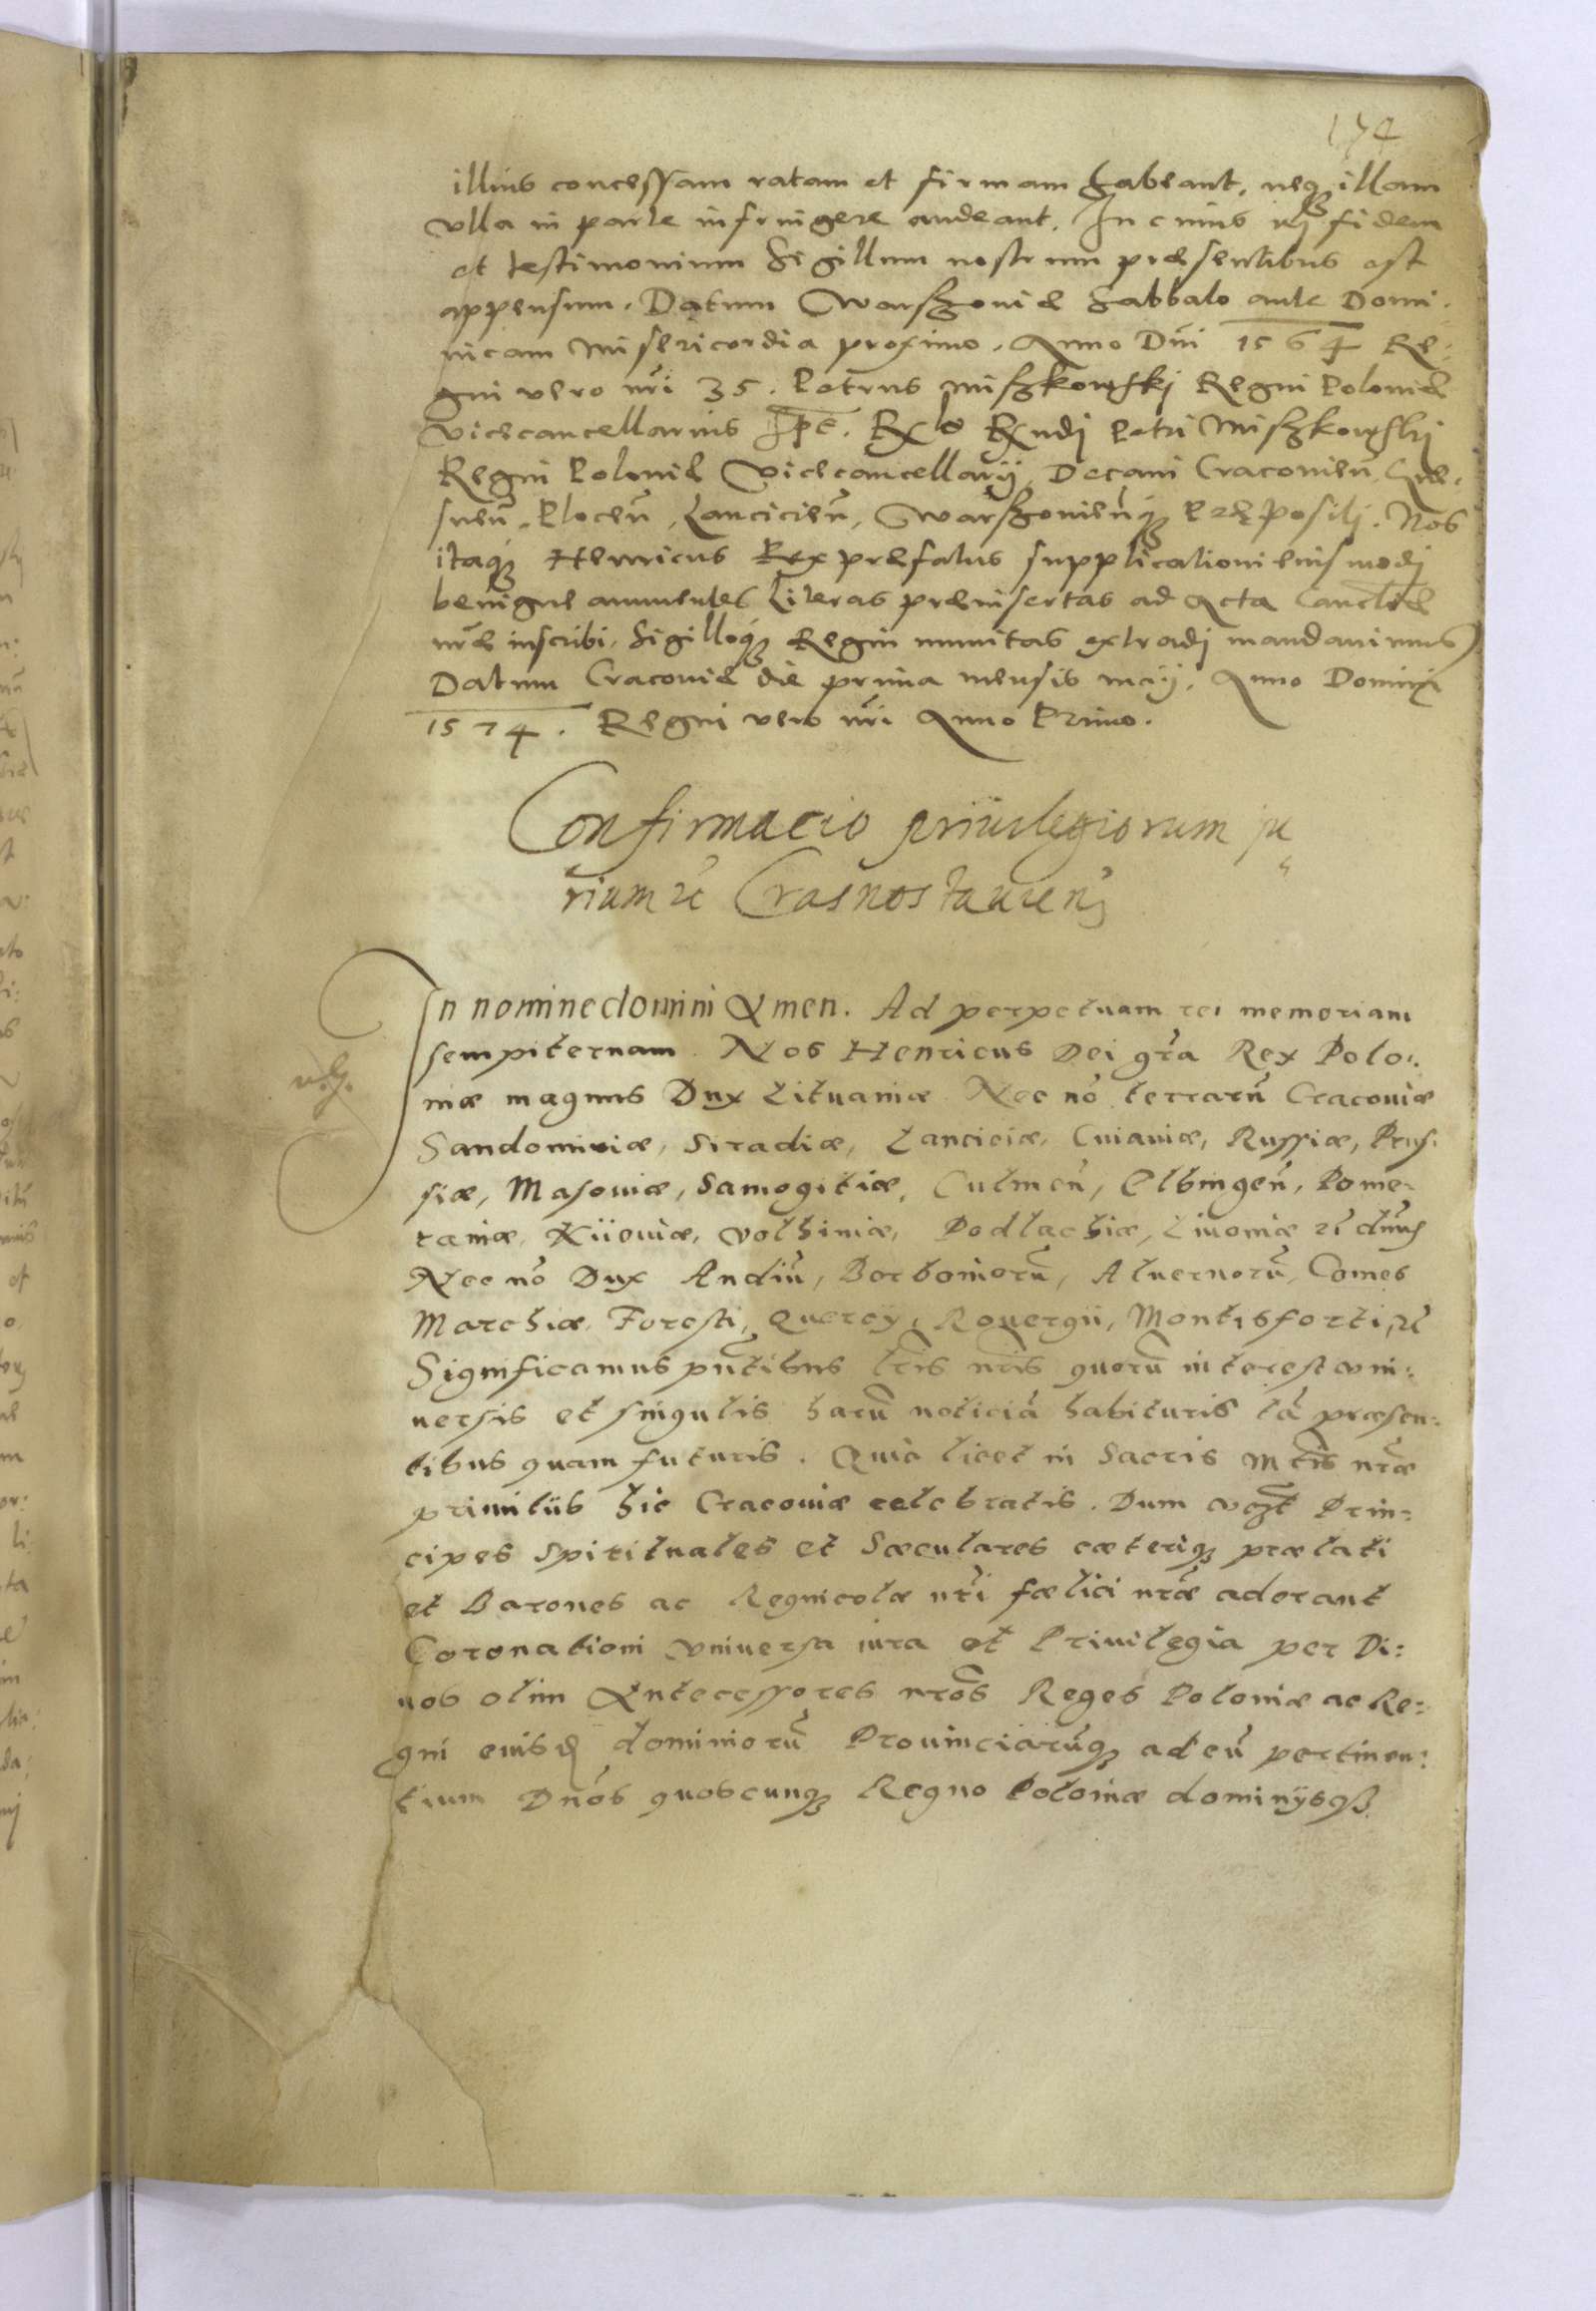 174
illius concessam ratam et firmam habeant, neq3 illam
vlla in parte infringere audeant. In cuius rei fidem
et testimonium Sigillum nostrum præsentibus est
appensum. Datum Warszoviæ Sabbato ante Domi-
nicam Misericordia proximo. Anno Dni 1564 Re-
gni vero nri 35. Petrus Miszkowskj Regni Poloniæ
Vicecancellarius Spt. Rlo Rndj Petri Miszkowskj
Regni Poloniæ Vicecancellarij, Decani Cracovien, Gne-
snen, Plocen, Lancicien, Warszovienq3 Præpositj. Nos
itaq3 Henricus Rex præfatus supplicationi eiusmodj
benigne annuentes Literas præinsertas ad Acta Cancelriæ
nræ inscribi, Sigilloq3 Regni munitas extradj mandavimus
Datum Cracoviæ die prima mensis maij, Anno Dominj
1574. Regni vero nri Anno Primo.
Confirmacio priuilegiorum ju
rium zc Crasnostauien
In nomine domini Amen. Ad perpetuam rei memoriam
sempiternam. Nos Henricus Dei gra Rex Polo:
niæ magnus Dux Lituaniæ Nec no terraru Cracoviæ
Sandomiriæ, Siradiæ, Lanciciæ, Cuiaviæ, Russiæ, Prus-
siæ, Masoviæ, Samogitiæ, Culmen, Elbingen, Pome-
raniæ, Kiioviæ, Volhiniæ, Podlachiæ, Livoniæ zc dnus
Nec no Dux Andiu, Borbonioru, Alvernoru, Comes
Marchiæ, Foresti, Quercÿ, Rouergii, Montisforti, zc
Significamus pntibus lris nris quoru interest vni:
uersis et singulis haru noticia habituris ta præsen:
tibus quam futuris. Quia licet in Sacris Mtis nræ
primitiis hic Cracoviæ celebratis. Dum vczt Prin:
cipes Spirituales et Sæculares cæteriq3 prælati
et Barones ac Regnicolæ nri fælici nræ aderant
Coronationi vniversa iura et Privilegia per Di:
uos olim Antecessores nros Reges Poloniæ ac Re:
gni eiusd dominioru Provinciaruq3 ad eu pertinen:
tium Dnos quoscunq3 Regno Poloniæ dominÿsq3